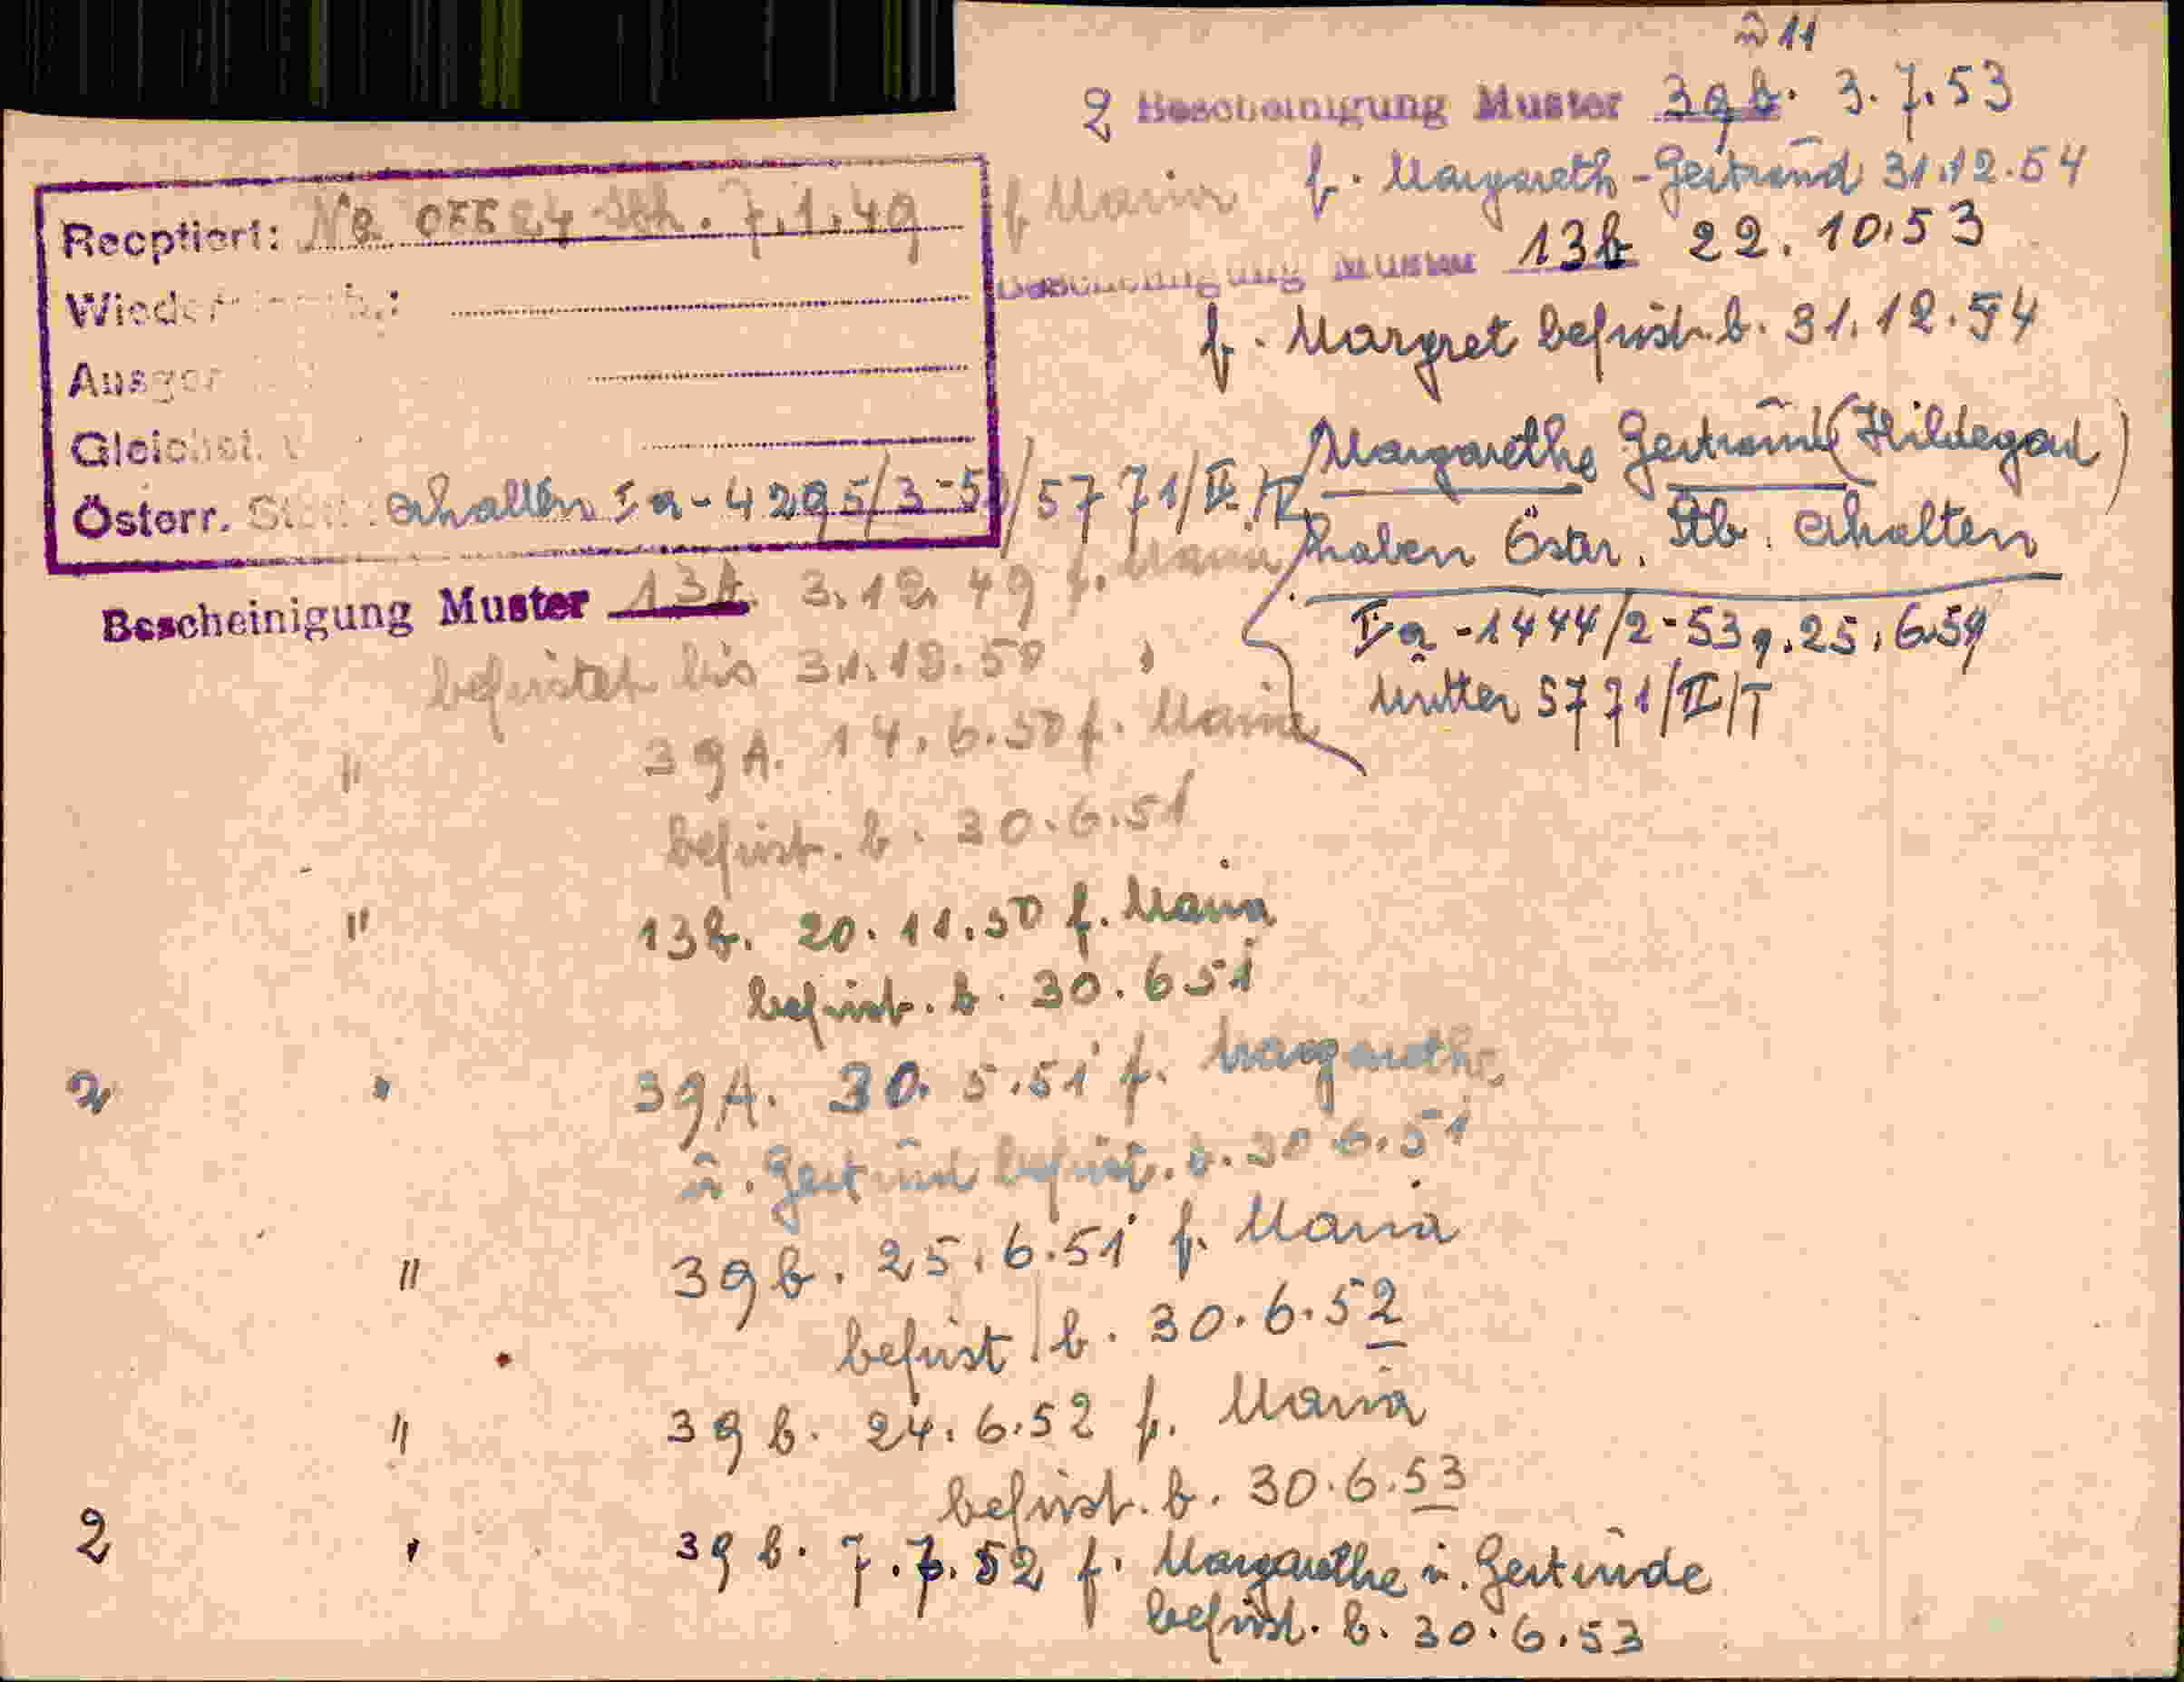 ũ 11
2 Bescheinigung Muster 39b. 3.7.53
f. Margareth-Gertrud 31.12.54
Bescheinigung Muster 13b 22.10.53
f. Margret befrist. b. 31.12.54
Margarethe Gertraud (Hildegard)
haben Östr. Stb. erhalten
Ia-1444/2-53 v. 25.6.54
Mutter 5771/II/T
Recptiert: No 7.1.49 f. Maria
Wieder
Ausge
Gleichst.
Österr. erhalten Ia-4295/3-5 /5771/II/T
Bescheinigung Muster 13A. 3.12.49 f. Maria
befristet bis 31.12.50
" 39A. 14.6.50 f. Maria
befrist. b. 30.6.51
" 13b. 20.11.50 f. Maria
befrist. b. 30.6 51
2 " 39A. 30.5.51 f. Margarethe
u. Gertrud befrist. b. 30 6.51
" 39b. 25.6.51 f. Maria
befrist. b. 30.6.52
" 39b. 24.6.52 f. Maria
befrist. b. 30.6.53
2 " 39b. 7.7.52 f. Margarethe u. Gertrude
befrist. b. 30.6.53